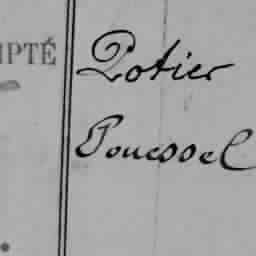 MPTÉ
Potier
Pouessel